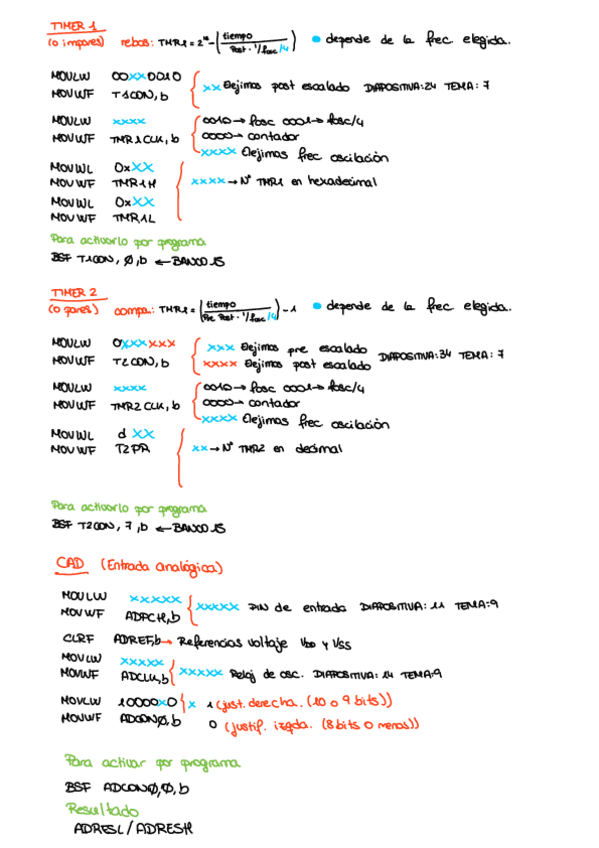 TIMER 1
(o impares) rebos: TMR1 = 2¹⁶ - (tiempo / Post · 1/fosc/4) • depende de la frec elegida.
MOVLW 00xx0010
MOVWF T1CON, b
xx Elejimos post escalado DIAPOSITIVA: 24 TEMA: 7
MOVLW xxxx
MOVWF TMR1CLK, b
0010 → fosc 0001 → fosc/4
0000 → contador
xxxx Elejimos frec oscilación
MOVWL 0xXX
MOVWF TMR1H
MOVWL 0xXX
MOVWF TMR1L
xxxx → Nº TMR1 en hexadecimal
Para activarlo por programa
BSF T1CON, 0, b ← BANCO 15
TIMER 2
(o pares) compa: TMR2 = (tiempo / Pre Post · 1/fosc/4) - 1 • depende de la frec elegida.
MOVLW 0xxxxxx
MOVWF T2CON, b
xxx Elejimos pre escalado
xxxx Elejimos post escalado
DIAPOSITIVA: 34 TEMA: 7
MOVLW xxxx
MOVWF TMR2CLK, b
0010 → fosc 0001 → fosc/4
0000 → contador
xxxx Elejimos frec oscilación
MOVWL d XX
MOVWF T2PR
xx → Nº TMR2 en decimal
Para activarlo por programa
BSF T2CON, 7, b ← BANCO 15
CAD (Entrada analógica)
MOVLW xxxxx
MOVWF ADPCH, b
xxxxx PIN de entrada DIAPOSITIVA: 11 TEMA: 9
CLRF ADREF, b → Referencias voltaje VDD y VSS
MOVLW xxxxx
MOVWF ADCLK, b
xxxxx Reloj de osc. DIAPOSITIVA: 14 TEMA: 9
MOVLW 10000x0
MOVWF ADCON0, b
x 1 (just. derecha. (10 o 9 bits))
0 (justif. izqda. (8 bits o menos))
Para activar por programa
BSF ADCON0, 0, b
Resultado
ADRESL / ADRESH